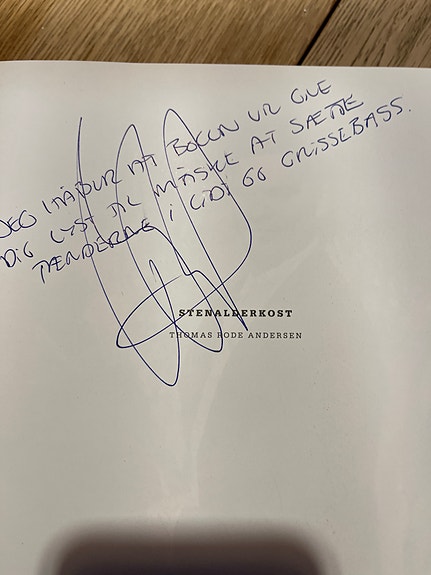 JEG HÅBER AT BOGEN VIL GIVE
DIG LYST TIL MÅSKE AT SÆTTE
TÆNDERNE I LIDT GRISSEBASS.
STENALDERKOST
THOMAS RODE ANDERSEN